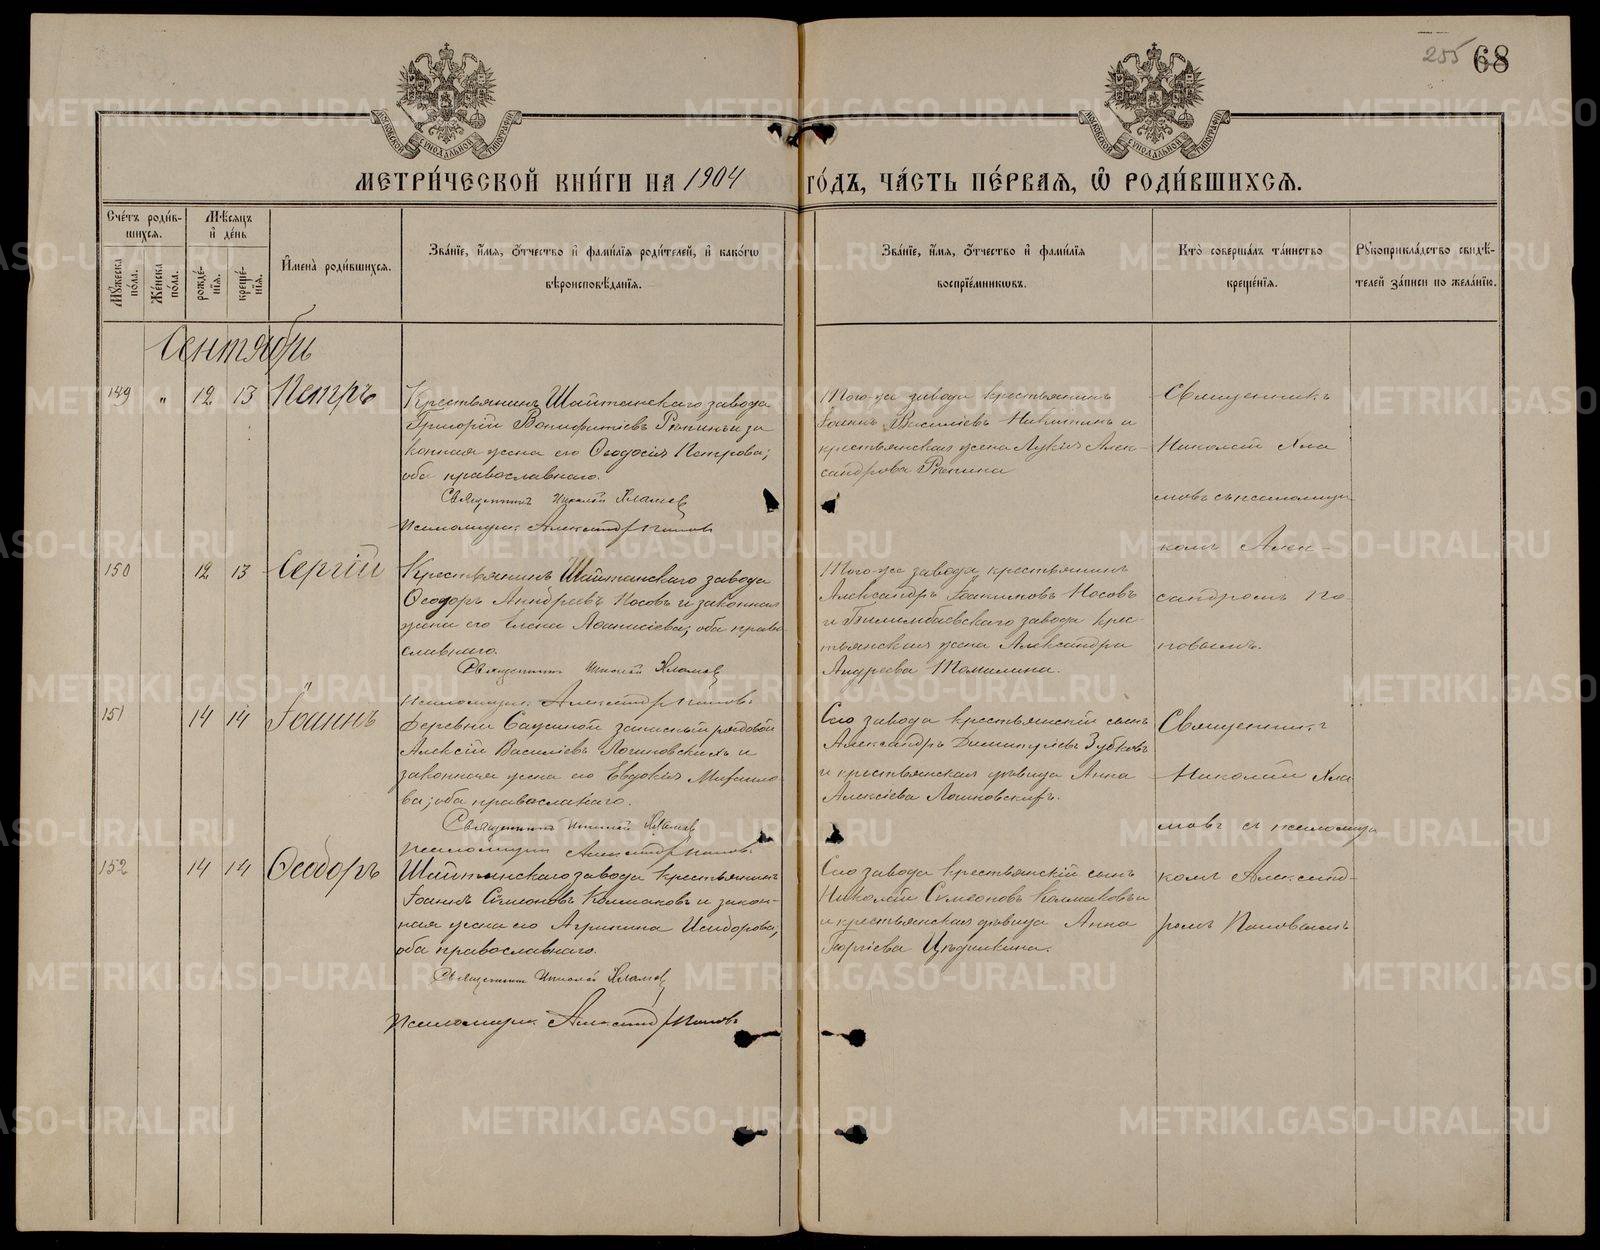 255 68
МОСКОВСКОЙ СѴНОДАЛЬНОЙ ТИПОГРАФІИ
МОСКОВСКОЙ СѴНОДАЛЬНОЙ ТИПОГРАФІИ
МЕТРИ́ЧЕСКОЙ КНИ́ГИ НА 1904 ГО́ДЪ, ЧА́СТЬ ПЕ́РВАЯ, Ѡ҆ РОДИ́ВШИХСЯ.
Сче́тъ роди́в-
шихся.
Мѣ́сяцъ
и҆ де́нь
Мꙋ́жеска по́ла.
Же́нска по́ла.
рожде́-
нїя.
креще́-
нїя.
И҆мена̀ роди́вшихся.
Зва́нїе, и҆́мя, ѻ҆́тчество и҆ фами́лїя роди́телей, и҆ како́гѡ
вѣроисповѣ́данїя.
Зва́нїе, и҆́мя, ѻ҆́тчество и҆ фами́лїя
воспрїе́мниковъ.
Кто̀ соверша́лъ та́инство
креще́нїя.
Рꙋкоприкла́дство свидѣ́-
телей за́писи по жела́нїю.
Сентябрь
149 " 12 13 Петръ
Крестьянинъ Шайтанскаго завода
Григорій Вонифатіевъ Рѣпинъ и за
конная жена его Ѳеодосія Петрова;
оба православнаго.
Священникъ Николай Хламов
Псаломщик Александр Попов
Того-же завода крестьянинъ
Іоаннъ Василіевъ Никитинъ и
крестьянская жена Лукія Алек-
сандрова Рѣпина
Священникъ
Николай Хла
мовъ съ псаломщи
комъ Алек-
сандромъ По-
повымъ.
150 12 13 Сергій
Крестьянинъ Шайтанскаго завода
Ѳеодоръ Андреевъ Носовъ и законная
жена его Елена Аѳанасіева; оба право
славнаго.
Священникъ Николай Хламов
Псаломщик Александр Попов
Того-же завода крестьянинъ
Александръ Іоакимовъ Носовъ
и Билимбаевскаго завода крес-
тьянская жена Александра
Андреева Томилина.
151 14 14 Іоаннъ
деревни запасный рядовой
Алексій Василіевъ Логиновскихъ и
законная жена его Евдокія
ва; оба православнаго.
Священникъ Николай Хламов
Псаломщик Александр Попов
Сего завода крестьянскій сынъ
Александръ Димитріевъ Зубковъ
и крестьянская дѣвица Анна
Алексіева Логиновскихъ.
Священникъ
Николай Хла
мовъ съ псаломщи
комъ Александ-
ромъ Поповымъ
152 14 14 Ѳеодоръ
Шайтанскаго завода крестьянинъ
Іоаннъ Симеоновъ Колмаковъ и закон-
ная жена его Агрипина Исидорова;
оба православнаго.
Священникъ Николай Хламов
Псаломщик Александр Попов
Сего завода крестьянскій сынъ
Николай Симеоновъ Колмаковъ и
и крестьянская дѣвица Анна
Георгіева
METRIKI.GASO-URAL.RU